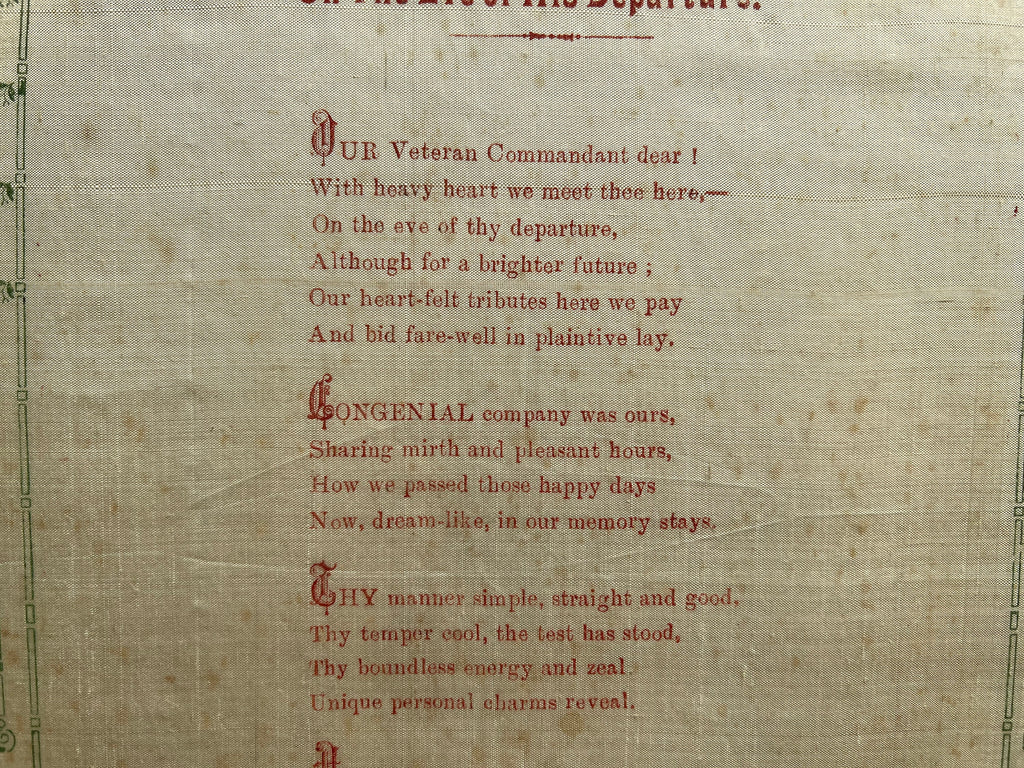 On The Eve of His Departure.
OUR Veteran Commandant dear !
With heavy heart we meet thee here,—
On the eve of thy departure,
Although for a brighter future ;
Our heart-felt tributes here we pay
And bid fare-well in plaintive lay.
CONGENIAL company was ours,
Sharing mirth and pleasant hours,
How we passed those happy days
Now, dream-like, in our memory stays.
THY manner simple, straight and good,
Thy temper cool, the test has stood,
Thy boundless energy and zeal
Unique personal charms reveal.